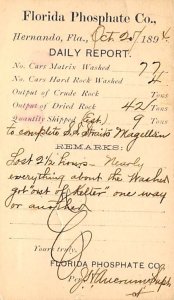 Florida Phosphate Co.,
Hernando, Fla., Oct 25/ 1894
DAILY REPORT.
No. Cars Matrix Washed 77
No. Cars Hard Rock Washed
Output of Crude Rock Tons
Output of Dried Rock 42 Tons
Quantity Shipped (Est.) 9 Tons
to complete S.S. Straits Magellan
REMARKS:
Lost 2½ hours - Nearly
everything about the Washer
got "out of kelter" one way
or another
Yours truly,
FLORIDA PHOSPHATE CO.
Supt.